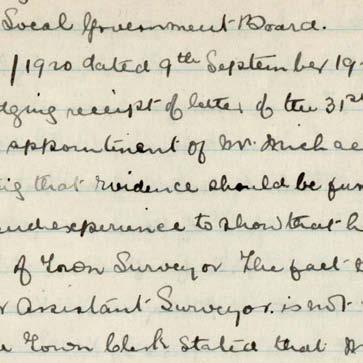 Local Government Board.
/1920 dated 9th September 19
dging receipt of letter of the 31st
appointment of Mr. Michae
ing that evidence should be fur
and experience to show that h
of Town Surveyor The fact
r Assistant Surveyor. is not
e Town Clerk stated that